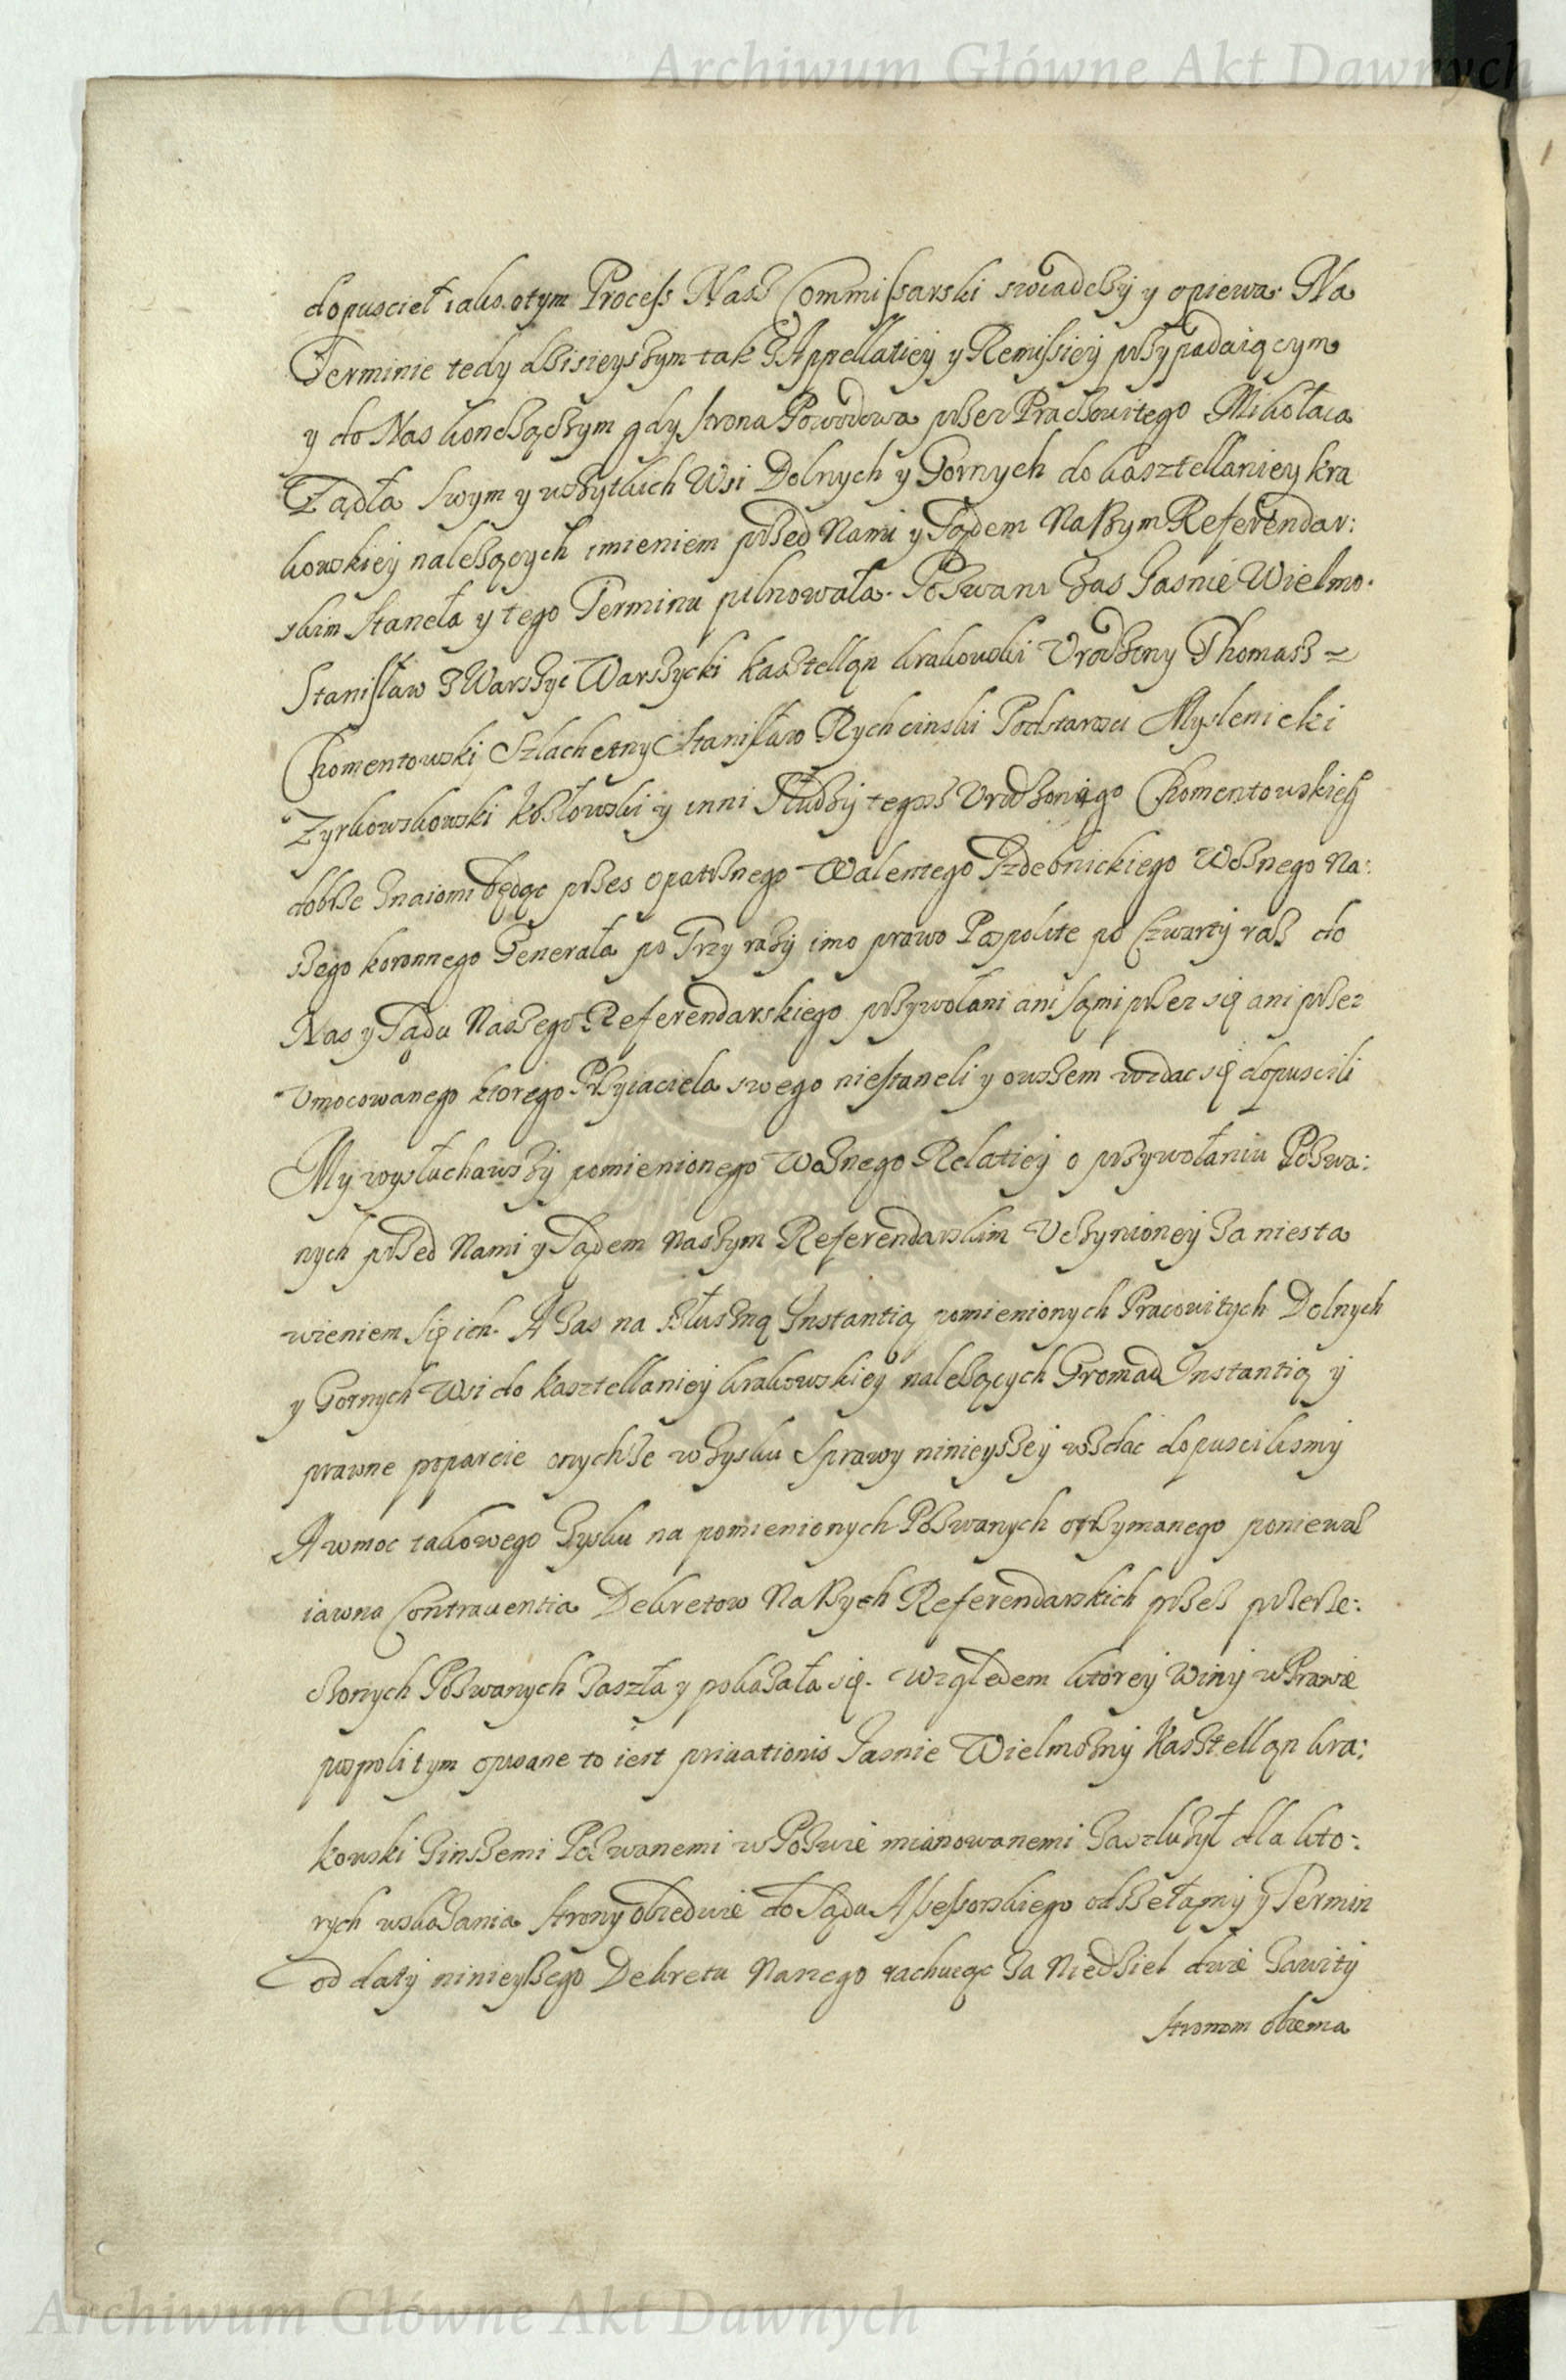 Archiwum Główne Akt Dawnych
dopuscieł iako otym Process Nasz Commissarski swiadczÿ y opiewa. Na
Terminie tedy dzisieyszym tak z Appellatieÿ y Remissieÿ przypadaiącym
y do Nas konczączym gdy strona Powodowa przez Praczowitego Mikołaia
Ządła swym y wszytkich Wsi Dolnych y Gornych do kasztellanieÿ kra
kowskieÿ należących imieniem przed Nami y Sądem Naszym Referendar:
skim staneła y tego Terminu pilnowała. Pozwani zas Jasnie Wielmo.
Stanisław z Warszyc Warszycki kasztellan krakowski Vrodzony Thomasz
Chomentowski Szlachetny Stanisław Rychcinski Podstarosci Myslenicki
Zyrkowskowski kozłowski y inni Słudzÿ tegosz Vrodzonego Chomentowskieg
dobrze znaiomi będąc przes opatrznego Walentego Izdebnickiego Woznego Na:
szego koronnego Generała po Trzy razÿ imo prawo Pospolite po Czwartÿ raz do
Nas y Sądu Naszego Referendarskiego przywołani ani sąmi przez się ani przez
Vmocowanego ktorego Przyiaciela swego niestaneli y owszem wzdac się dopuscili
Mÿ wysłuchawszÿ pomienionego Woznego Relatieÿ o przywołaniu Pozwa:
nych przed Nami y Sądem naszym Referendarskim Vczynioneÿ za niesta
wieniem się ich. A zas na słuszną Instantią pomienionych Pracowitych Dolnych
y Gornych Wsi do kasztellanieÿ krakowskieÿ należących Gromad Instantią ÿ
prawne poparcie onychże w zysku Sprawy ninieyszeÿ wzdać dopuscilismÿ
A w moc takowego zysku na pomienionych Pozwanych otrzymanego poniewasz
iawna Contrauentia Dekretow Naszych Referendarskich przez przerze:
czonych Pozwanych zaszła y pokazała się. Względem ktoreÿ winÿ w Prawie
pospolitym opisane to iest priuationis Jasnie Wielmoznÿ kasztellan kra:
kowski z inszemi Pozwanemi w Pozwie mianowanemi zasłużył dla kto:
rych wskazania strony obiedwie do Sądu Assessorskiego odszełamÿ y Termin
od datÿ ninieyszego Dekretu Naszego rachuiąc za Niedziel dwie zawitÿ
stronom obiema
Archiwum Główne Akt Dawnych